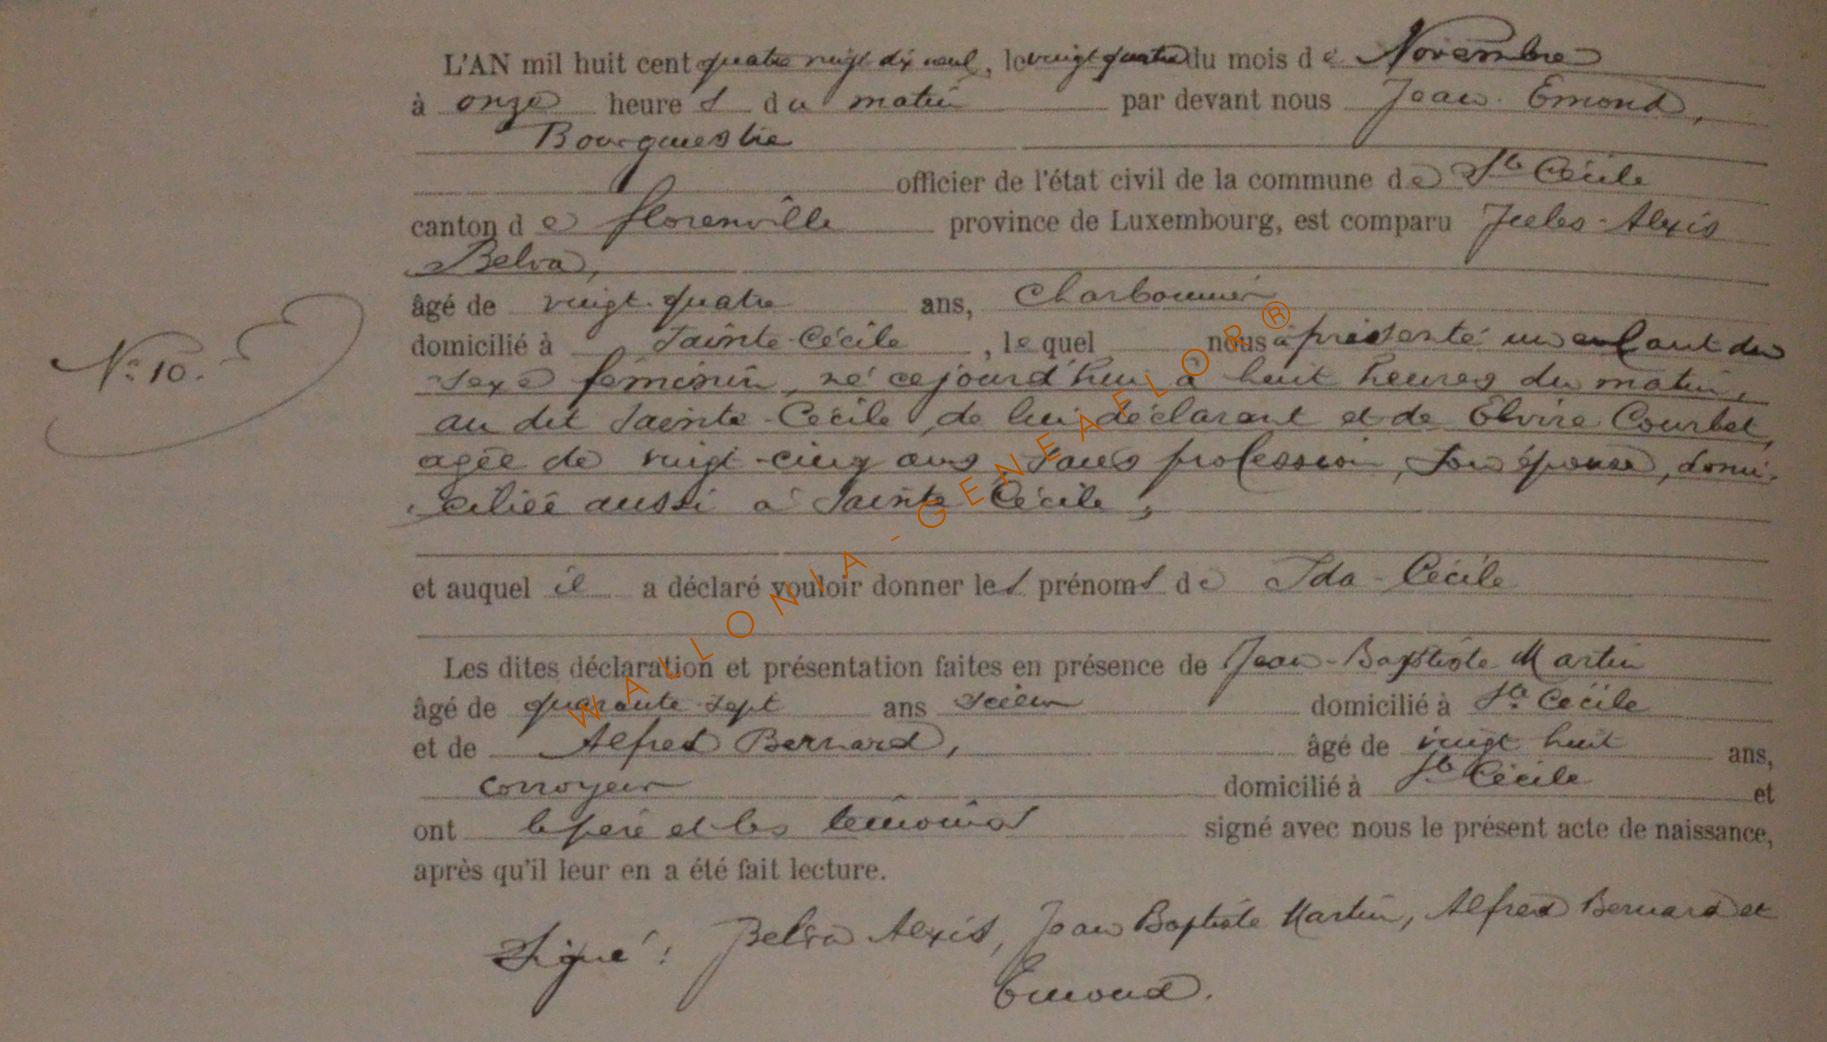 L'AN mil huit cent quatre vingt dix neuf, le vingt quatre du mois de Novembre
à onze heures du matin par devant nous Jean Emond,
Bourgmestre
officier de l'état civil de la commune de Ste Cécile
canton de Florenville province de Luxembourg, est comparu Jules-Alexis
Belva,
âgé de vingt-quatre ans, Charbonnier
domicilié à Sainte-Cécile, lequel nous a présenté un enfant du
N° 10.
sexe féminin, né cejourd'hui à huit heures du matin,
au dit Sainte-Cécile, de lui déclarant et de Elvire Courbet,
agée de vingt-cinq ans, sans profession, son épouse, domi-
ciliée aussi à Sainte Cécile,
et auquel il a déclaré vouloir donner les prénoms de Ida-Cécile
Les dites déclaration et présentation faites en présence de Jean-Baptiste Martin
âgé de quarante-sept ans scieur domicilié à Ste Cécile
et de Alfred Bernard, âgé de vingt huit ans,
corroyeur domicilié à Ste Cécile et
ont le père et les témoins signé avec nous le présent acte de naissance,
après qu'il leur en a été fait lecture.
Signé: Belva Alexis, Jean Baptiste Martin, Alfred Bernard et
Emond.
WALLONIA-GENEAFLOR®